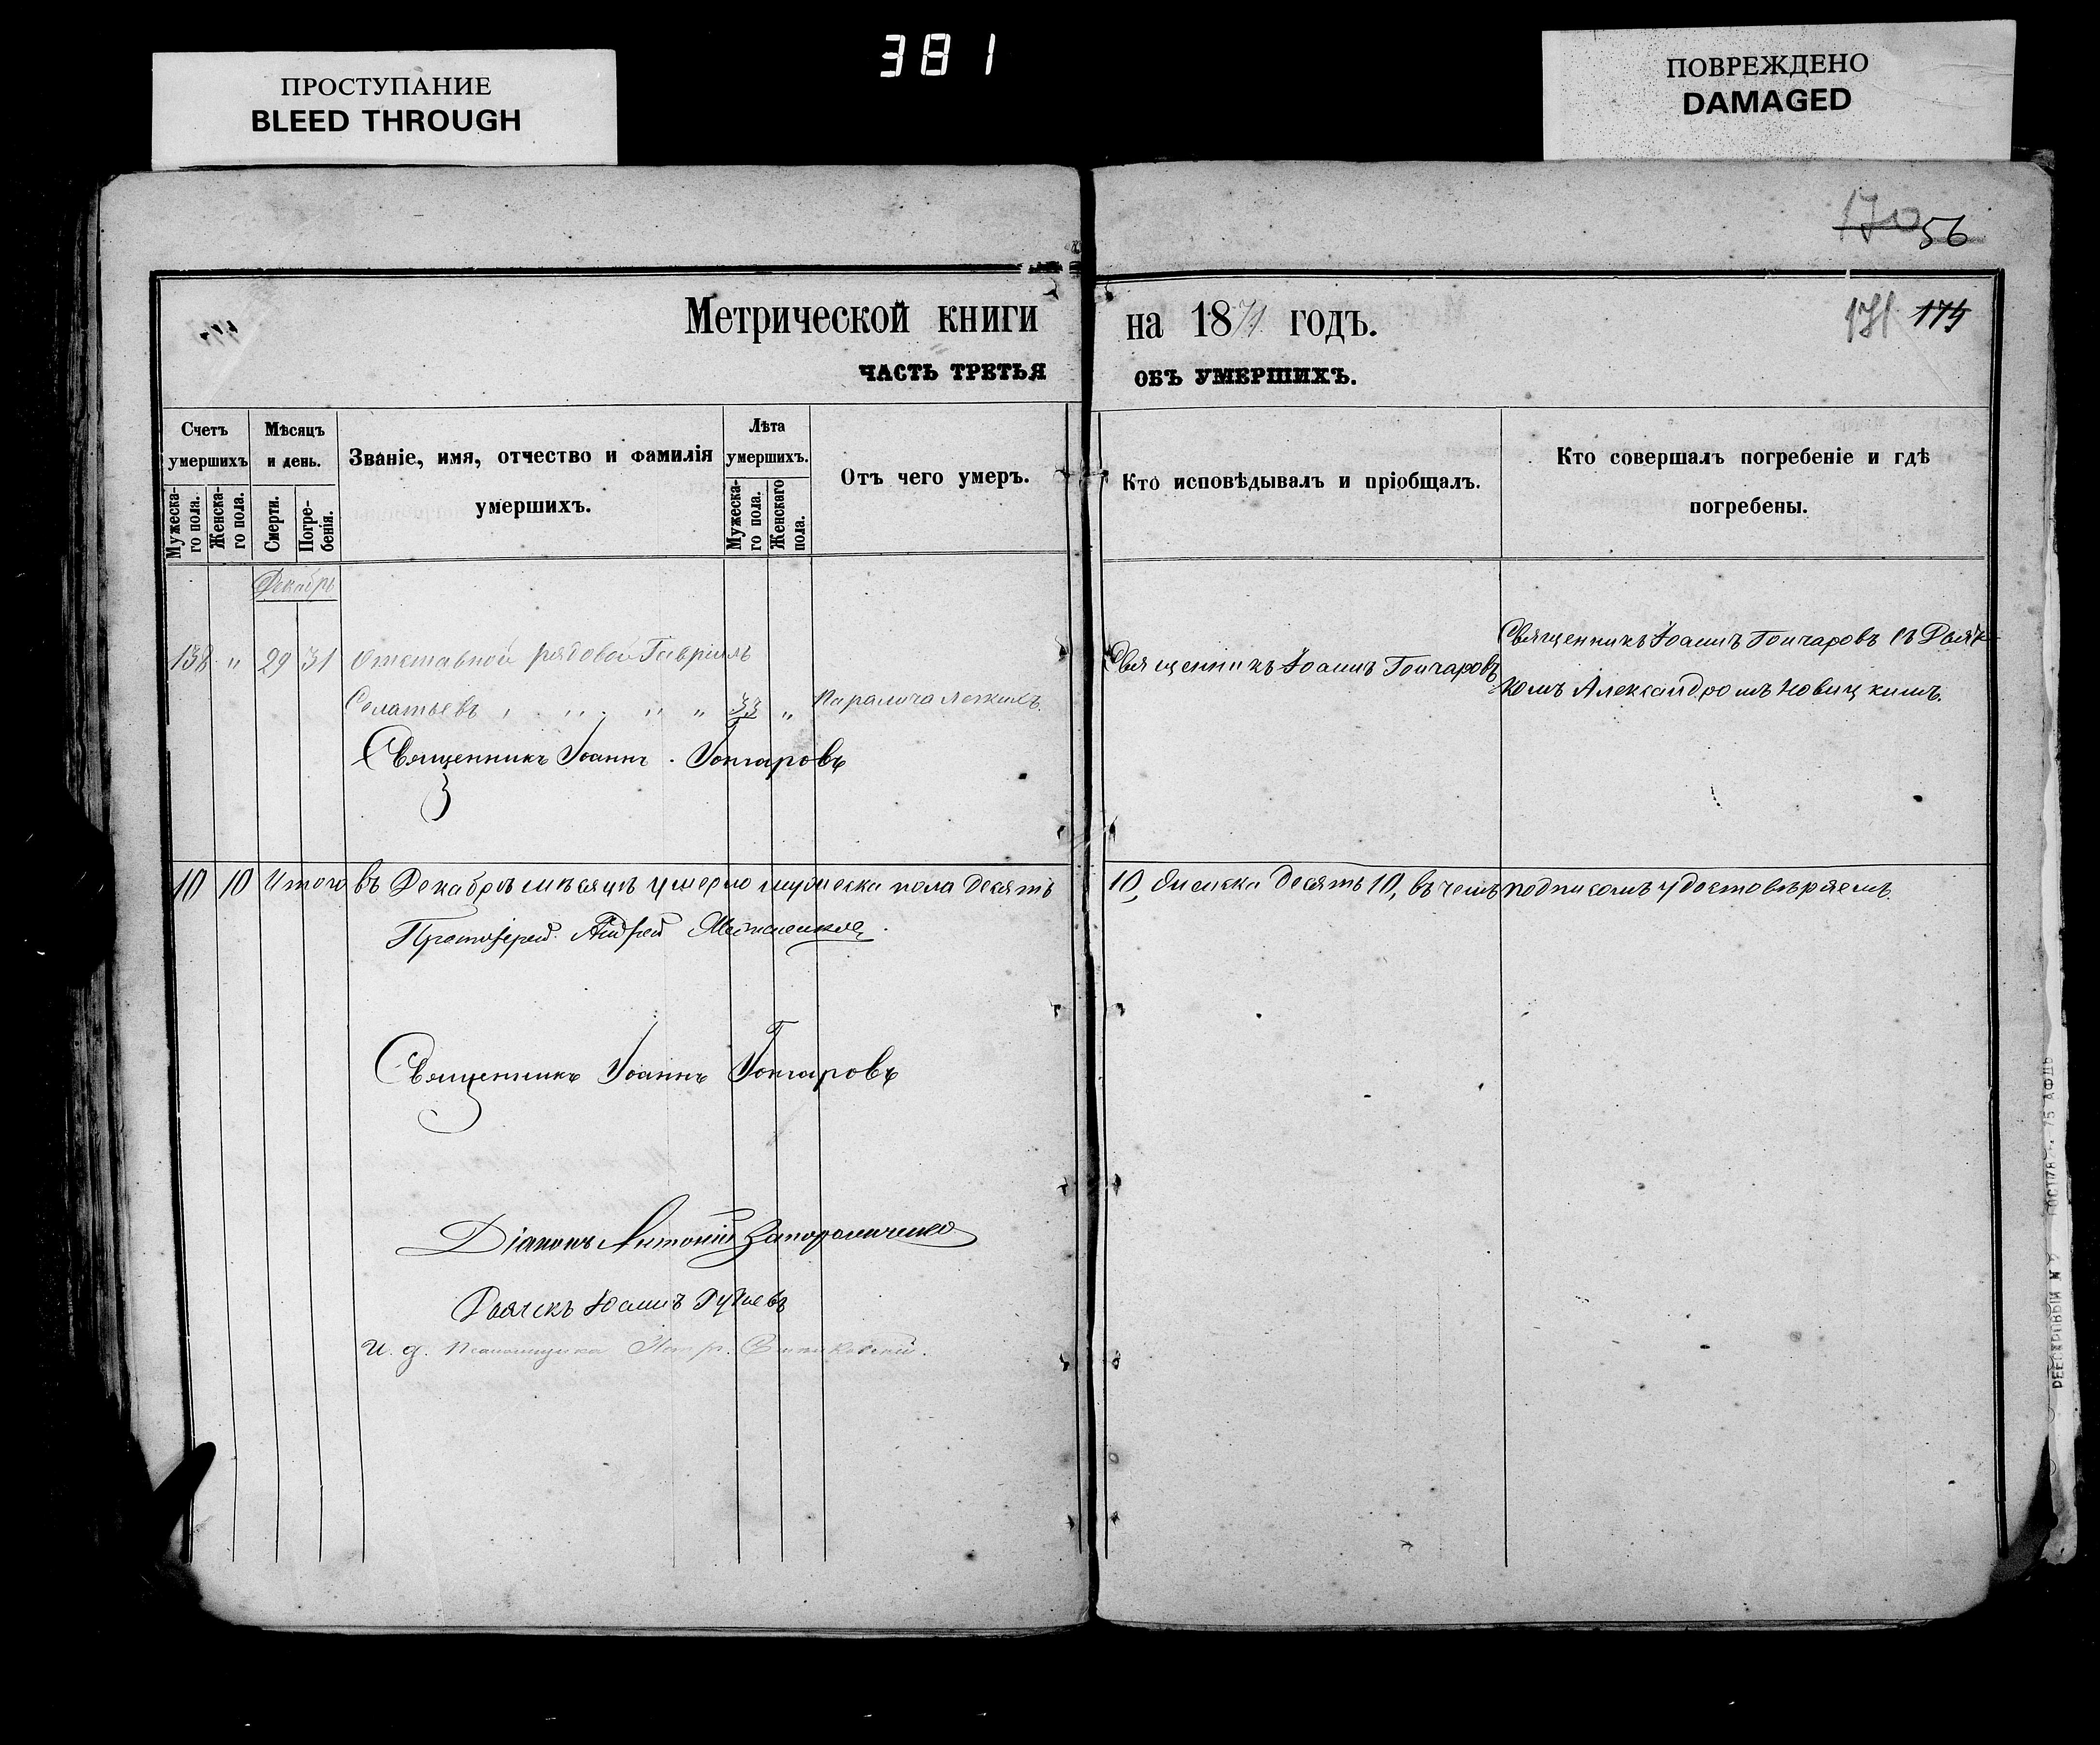 381
ПРОСТУПАНИЕ
BLEED THROUGH
ПОВРЕЖДЕНО
DAMAGED
170 56
171 175
Метрической книги на 1871 годъ.
ЧАСТЬ ТРЕТЬЯ ОБЪ УМЕРШИХЪ.
Счетъ умершихъ
Мужеска-го пола.
Женска-го пола.
Мѣсяцъ и день.
Смерти.
Погре-бенія.
Званіе, имя, отчество и фамилія умершихъ.
Лѣта умершихъ.
Мужеска-го пола.
Женскаго пола.
Отъ чего умеръ.
Кто исповѣдывалъ и пріобщалъ.
Кто совершалъ погребеніе и гдѣ погребены.
Декабрь
138 " 29 31 Отставной рядовой Гавріилъ
" " " 33 " Паралича легкихъ.
Священникъ Іоаннъ Гончаровъ
Священникъ Іоаннъ Гончаровъ
Священникъ Іоаннъ Гончаровъ съ Дьяч-
комъ Александромъ Новицкимъ.
10 10 Итого въ Декабрѣ мѣсяцѣ умерло мужеска пола десять 10, женска десять 10, въ чемъ подписомъ удостовѣряемъ.
Протоіерей Андрей
Священникъ Іоаннъ Гончаровъ
Діаконъ Антоній Запорожченко
Дьячекъ Іоаннъ
И. д. Псаломщика